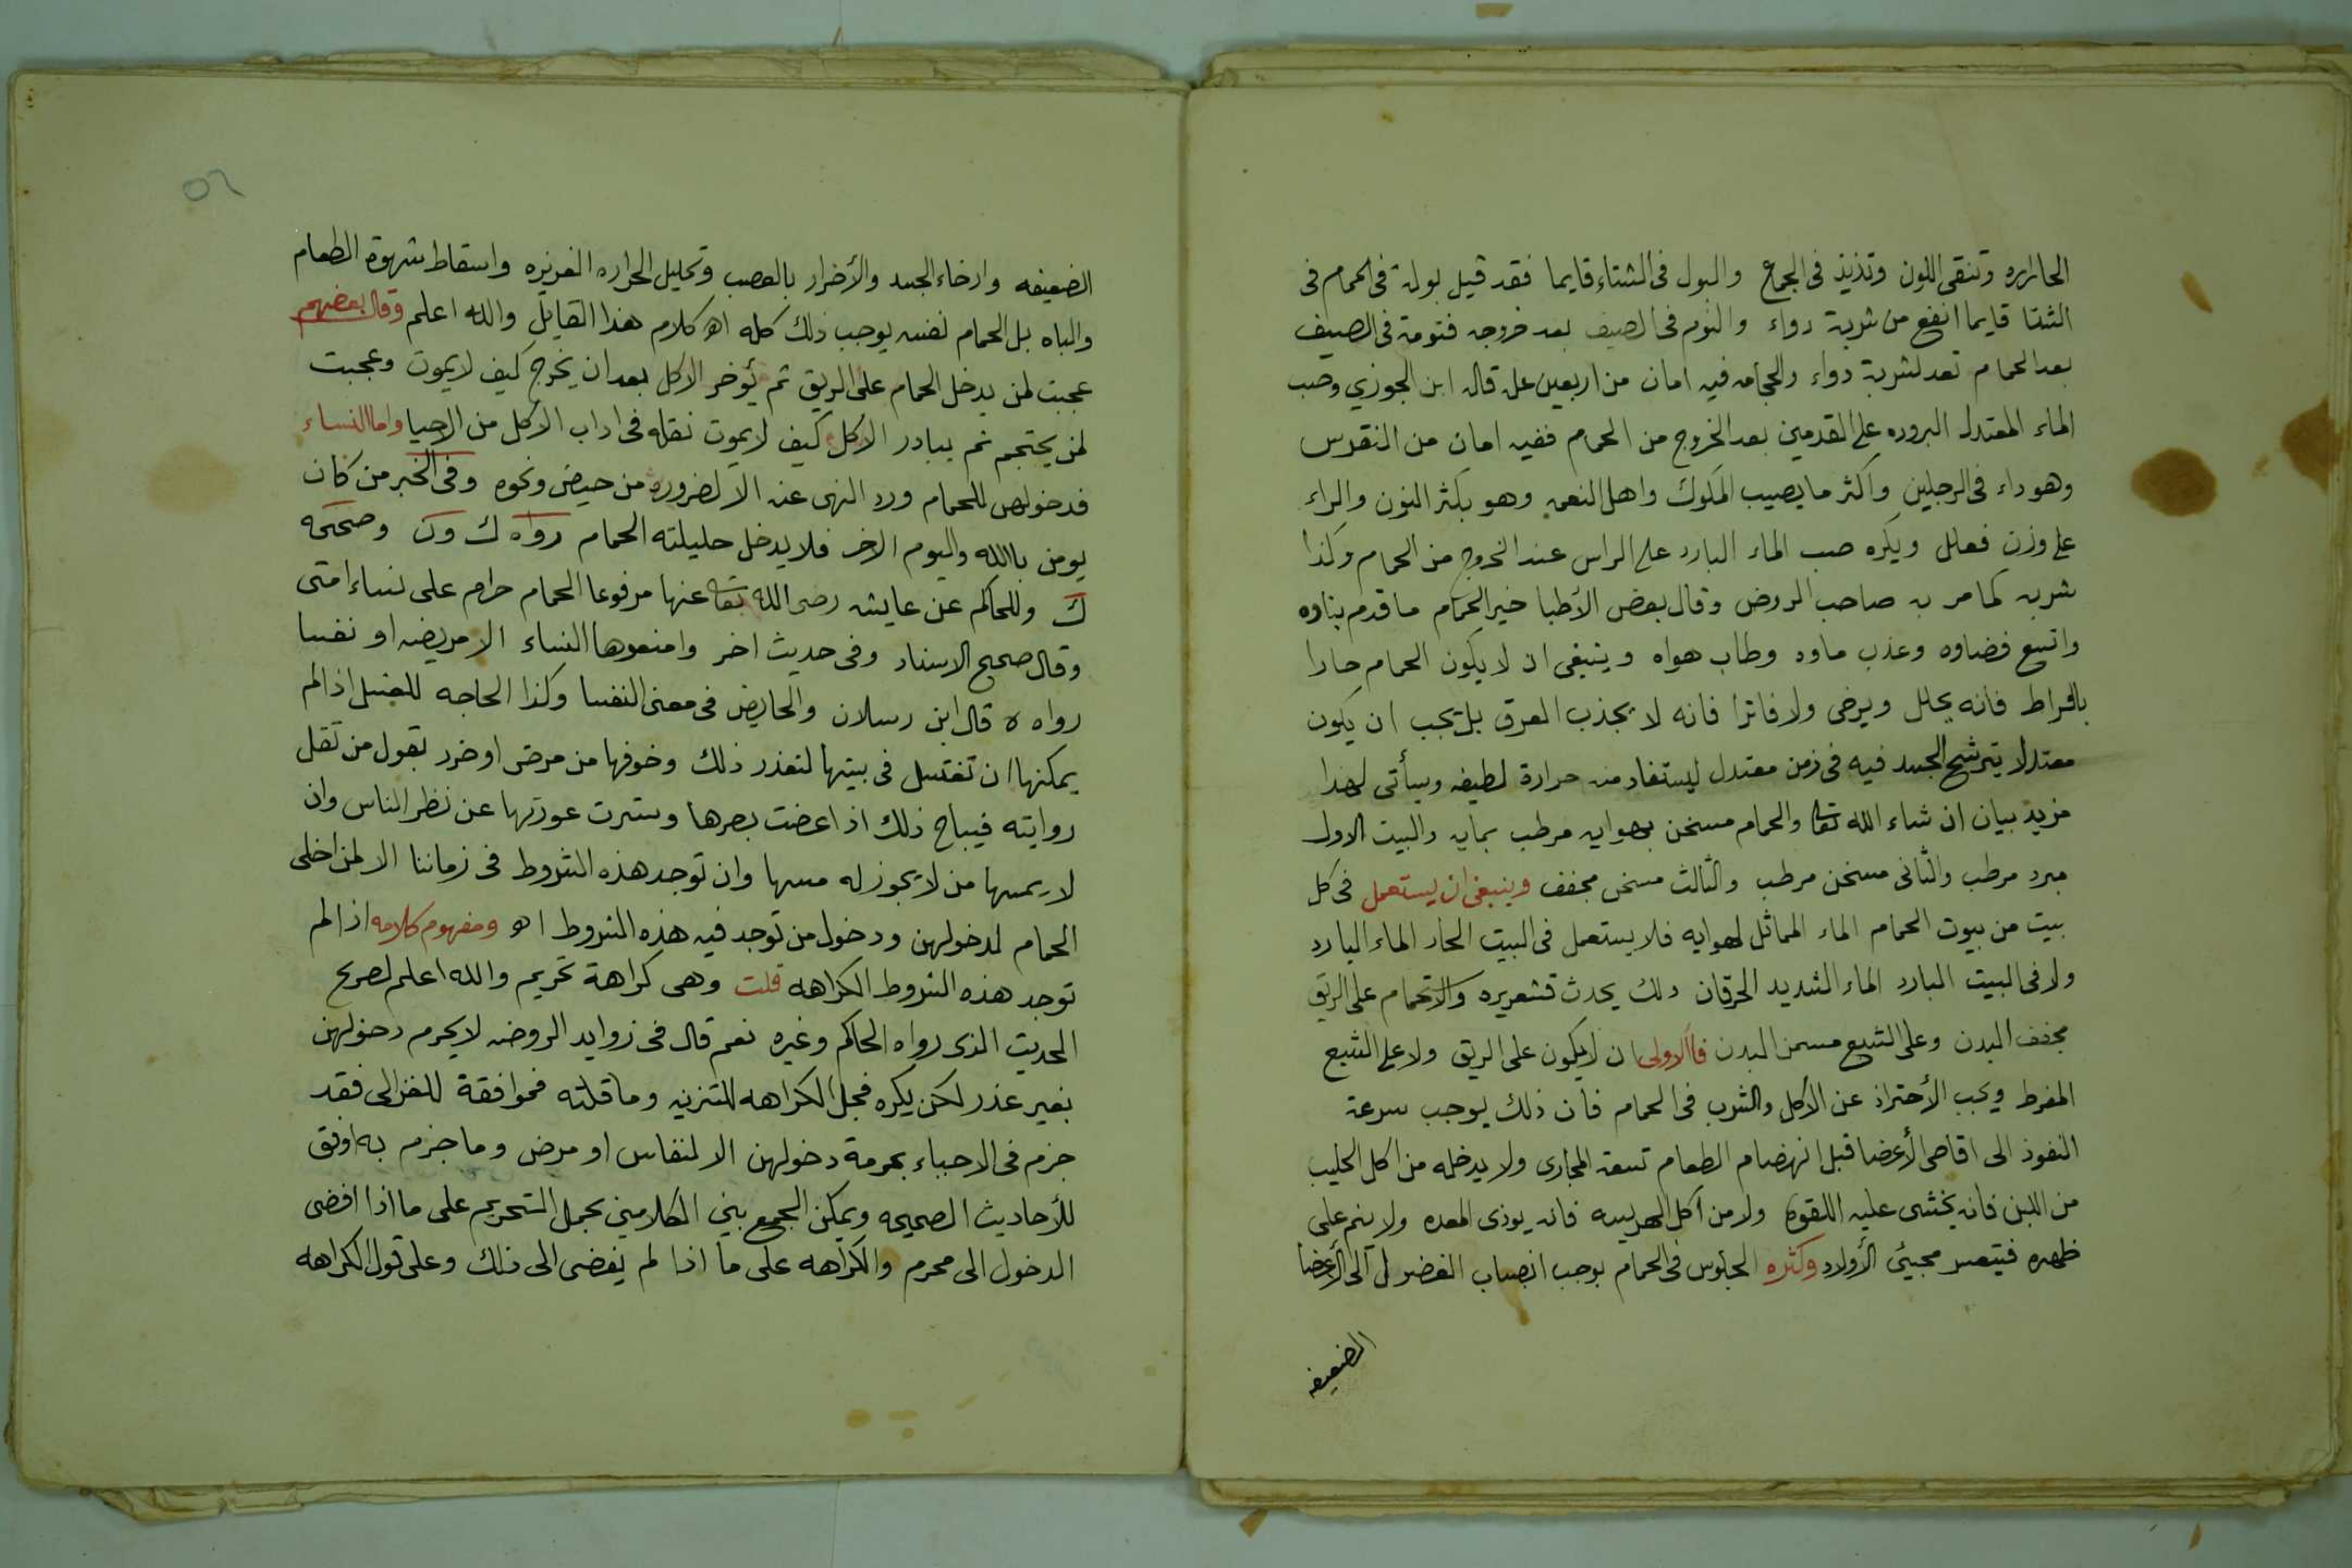 الحاراره وتنقى اللون وتذيذ فى الجماع والبول فى الشتاء قايما فقد قيل بولة فى الحمام فى
الشتا قايما انفع من شربة دواء والنوم فى الصيف بعد خروجه فنومة فى الصيف
بعد الحمام تعدل شربة دواء والحجامه فيه امان من اربعين علة قاله ابن الجوزي وصب
الماء المعتدل البروده على القدمين بعد الخروج من الحمام ففيه امان من النقرس
وهو داء فى الرجلين واكثر ما يصيب الملوك واهل النعمه وهو بكثر النون والراء
على وزن فعلل ويكره صب الماء البارد على الراس عند الخروج من الحمام وكذا
شربه كما مر به صاحب الروض وقال بعض الأطبا خير الحمام ما قدم بناوه
واتسع فضاوه وعذب ماوه وطاب هواه وينبغى ان لا يكون الحمام حارا
بافراط فانه يحلل ويرخى ولا فاترا فانه لا يجذب العرق بل يجب ان يكون
معتدلا يترشح الجسد فيه فى زمن معتدل ليستفاد منه حرارة لطيفه وسيأتى لهذا
مزيد بيان ان شاء الله تعا والحمام مسخن بهوايه مرطب بمايه والبيت الاول
مبرد مرطب والثانى مسخن مرطب والثالث مسخن مجفف وينبغى ان يستعمل فى كل
بيت من بيوت الحمام الماء المماثل لهوايه فلا يستعمل فى البيت الحار الماء البارد
ولا فى البيت البارد الماء الشديد الحرقان ذلك يحدث قشعريره والاتحمام على الريق
مجفف البدن وعلى الشبع مسمن البدن فالاولى ان لايكون على الريق ولا على الشبع
المفرط ويجب الأحتراز عن الأكل والشرب فى الحمام فان ذلك يوجب سرعة
النفوذ الى اقاصى الأعضا قبل انهضام الطعام تسعة المجارى ولا يدخله من اكل الحليب
من اللبن فانه يخشى عليه اللقوة ولا من اكل الهريسه فانه يوذى المعده ولا ينم على
ظهره فيتعسر مجيئ الأولاد وكثره الجلوس فى الحمام يوجب انصباب الفضول الى الأعضا
الضعيفه
٥٦
الضعيفه وارخاء الجسد والأضرار بالعصب وتحليل الحراره الغريزه واسقاط شهوة الطعام
والباه بل الحمام نفسه يوجب ذلك كله اه كلام هذا القايل والله اعلم وقال بعضهم
عجبت لمن يدخل الحمام على الريق ثم يؤخر الاكل بعد ان يخرج كيف لايموت وعجبت
لمن يحتجم ثم يبادر الاكل كيف لايموت نقله فى اداب الاكل من الاحيا واما النساء
فدخولهن للحمام ورد النهى عنه الا لضرورة من حيض ونحوه وفى الخبر من كان
يومن بالله واليوم الاخر فلا يدخل حليلته الحمام رواه ك ون وصححه
ك وللحاكم عن عايشه رضى الله تعا عنها مرفوعا الحمام حرام على نساء امتى
وقال صحيح الاسناد وفى حديث اخر وامنعوها النساء الا مريضه او نفسا
رواه ه قال ابن رسلان والحايض فى معنى النفسا وكذا الحاجه للغسل اذا لم
يمكنها ان تغتسل فى بيتها لتعذر ذلك وخوفها من مرض او ضرر بقول من تقل
روايته فيباح ذلك اذا غضت بصرها وسترت عورتها عن نظر الناس وان
لا يمسها من لا يجوز له مسها وان توجد هذه الشروط فى زماننا الا لمن اخلى
الحمام لدخولهن ودخول من توجد فيه هذه الشروط اه ومفهوم كلامه اذا لم
توجد هذه الشروط الكراهه قلت وهى كراهة تحريم والله اعلم لصريح
الحديث الذى رواه الحاكم وغيره نعم قال فى زوايد الروضه لايحرم دخولهن
بغير عذر لكن يكره فجعل الكراهه للتنزيه وما قلته فموافقة للغزالى فقد
جزم فى الاحياء بحرمة دخولهن الا لنفاس او مرض وما جزم به اوفق
للأحاديث الصحيحه ويمكن الجمع بين الكلامين بحمل التحريم على ما اذا افضى
الدخول الى محرم والكراهه على ما اذا لم يفضى الى ذلك وعلى قول الكراهه